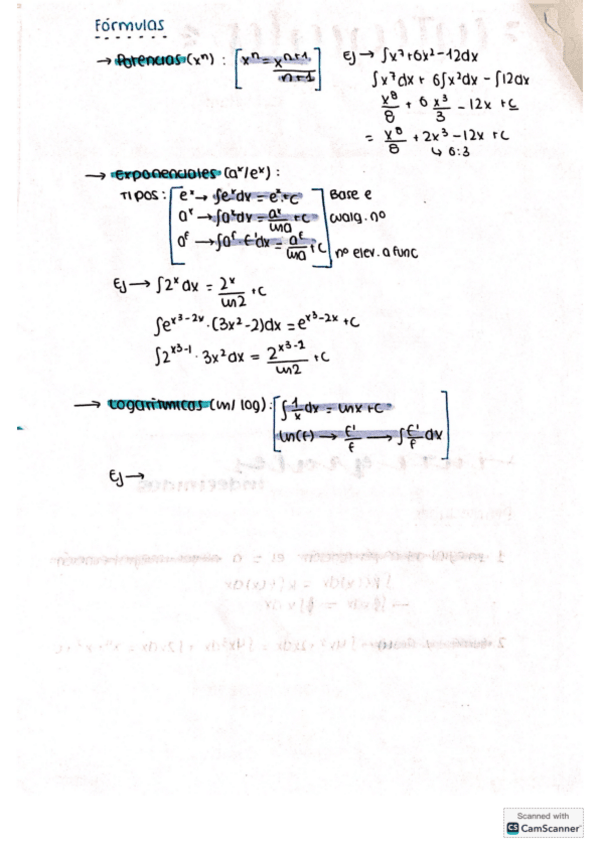 Fórmulas
→ Potencias (xⁿ) : [xⁿ = xⁿ⁺¹/n+1]
Ej → ∫x⁷+6x²-12dx
∫x⁷dx + 6∫x²dx - ∫12dx
x⁸/8 + 6 x³/3 - 12x + c
= x⁸/8 + 2x³ - 12x + c
↳ 6:3
→ Exponenciales (aˣ/eˣ) :
Tipos : eˣ → ∫eˣdv = eˣ+c Base e
aˣ → ∫aˣdv = aˣ/lna + c cualq. nº
aᶠ → ∫aᶠ·f'dx = aᶠ/lna + c nº elev. a func
Ej → ∫2ˣdx = 2ˣ/ln2 + c
∫eˣ³⁻²ˣ · (3x²-2)dx = eˣ³⁻²ˣ + c
∫2ˣ³⁻¹ · 3x²dx = 2ˣ³⁻¹/ln2 + c
→ Logarítmicas (ln/log) : ∫1/x dx = lnx + c
ln(f) → f'/f → ∫f'/f dx
Ej →
Scanned with
CS CamScanner